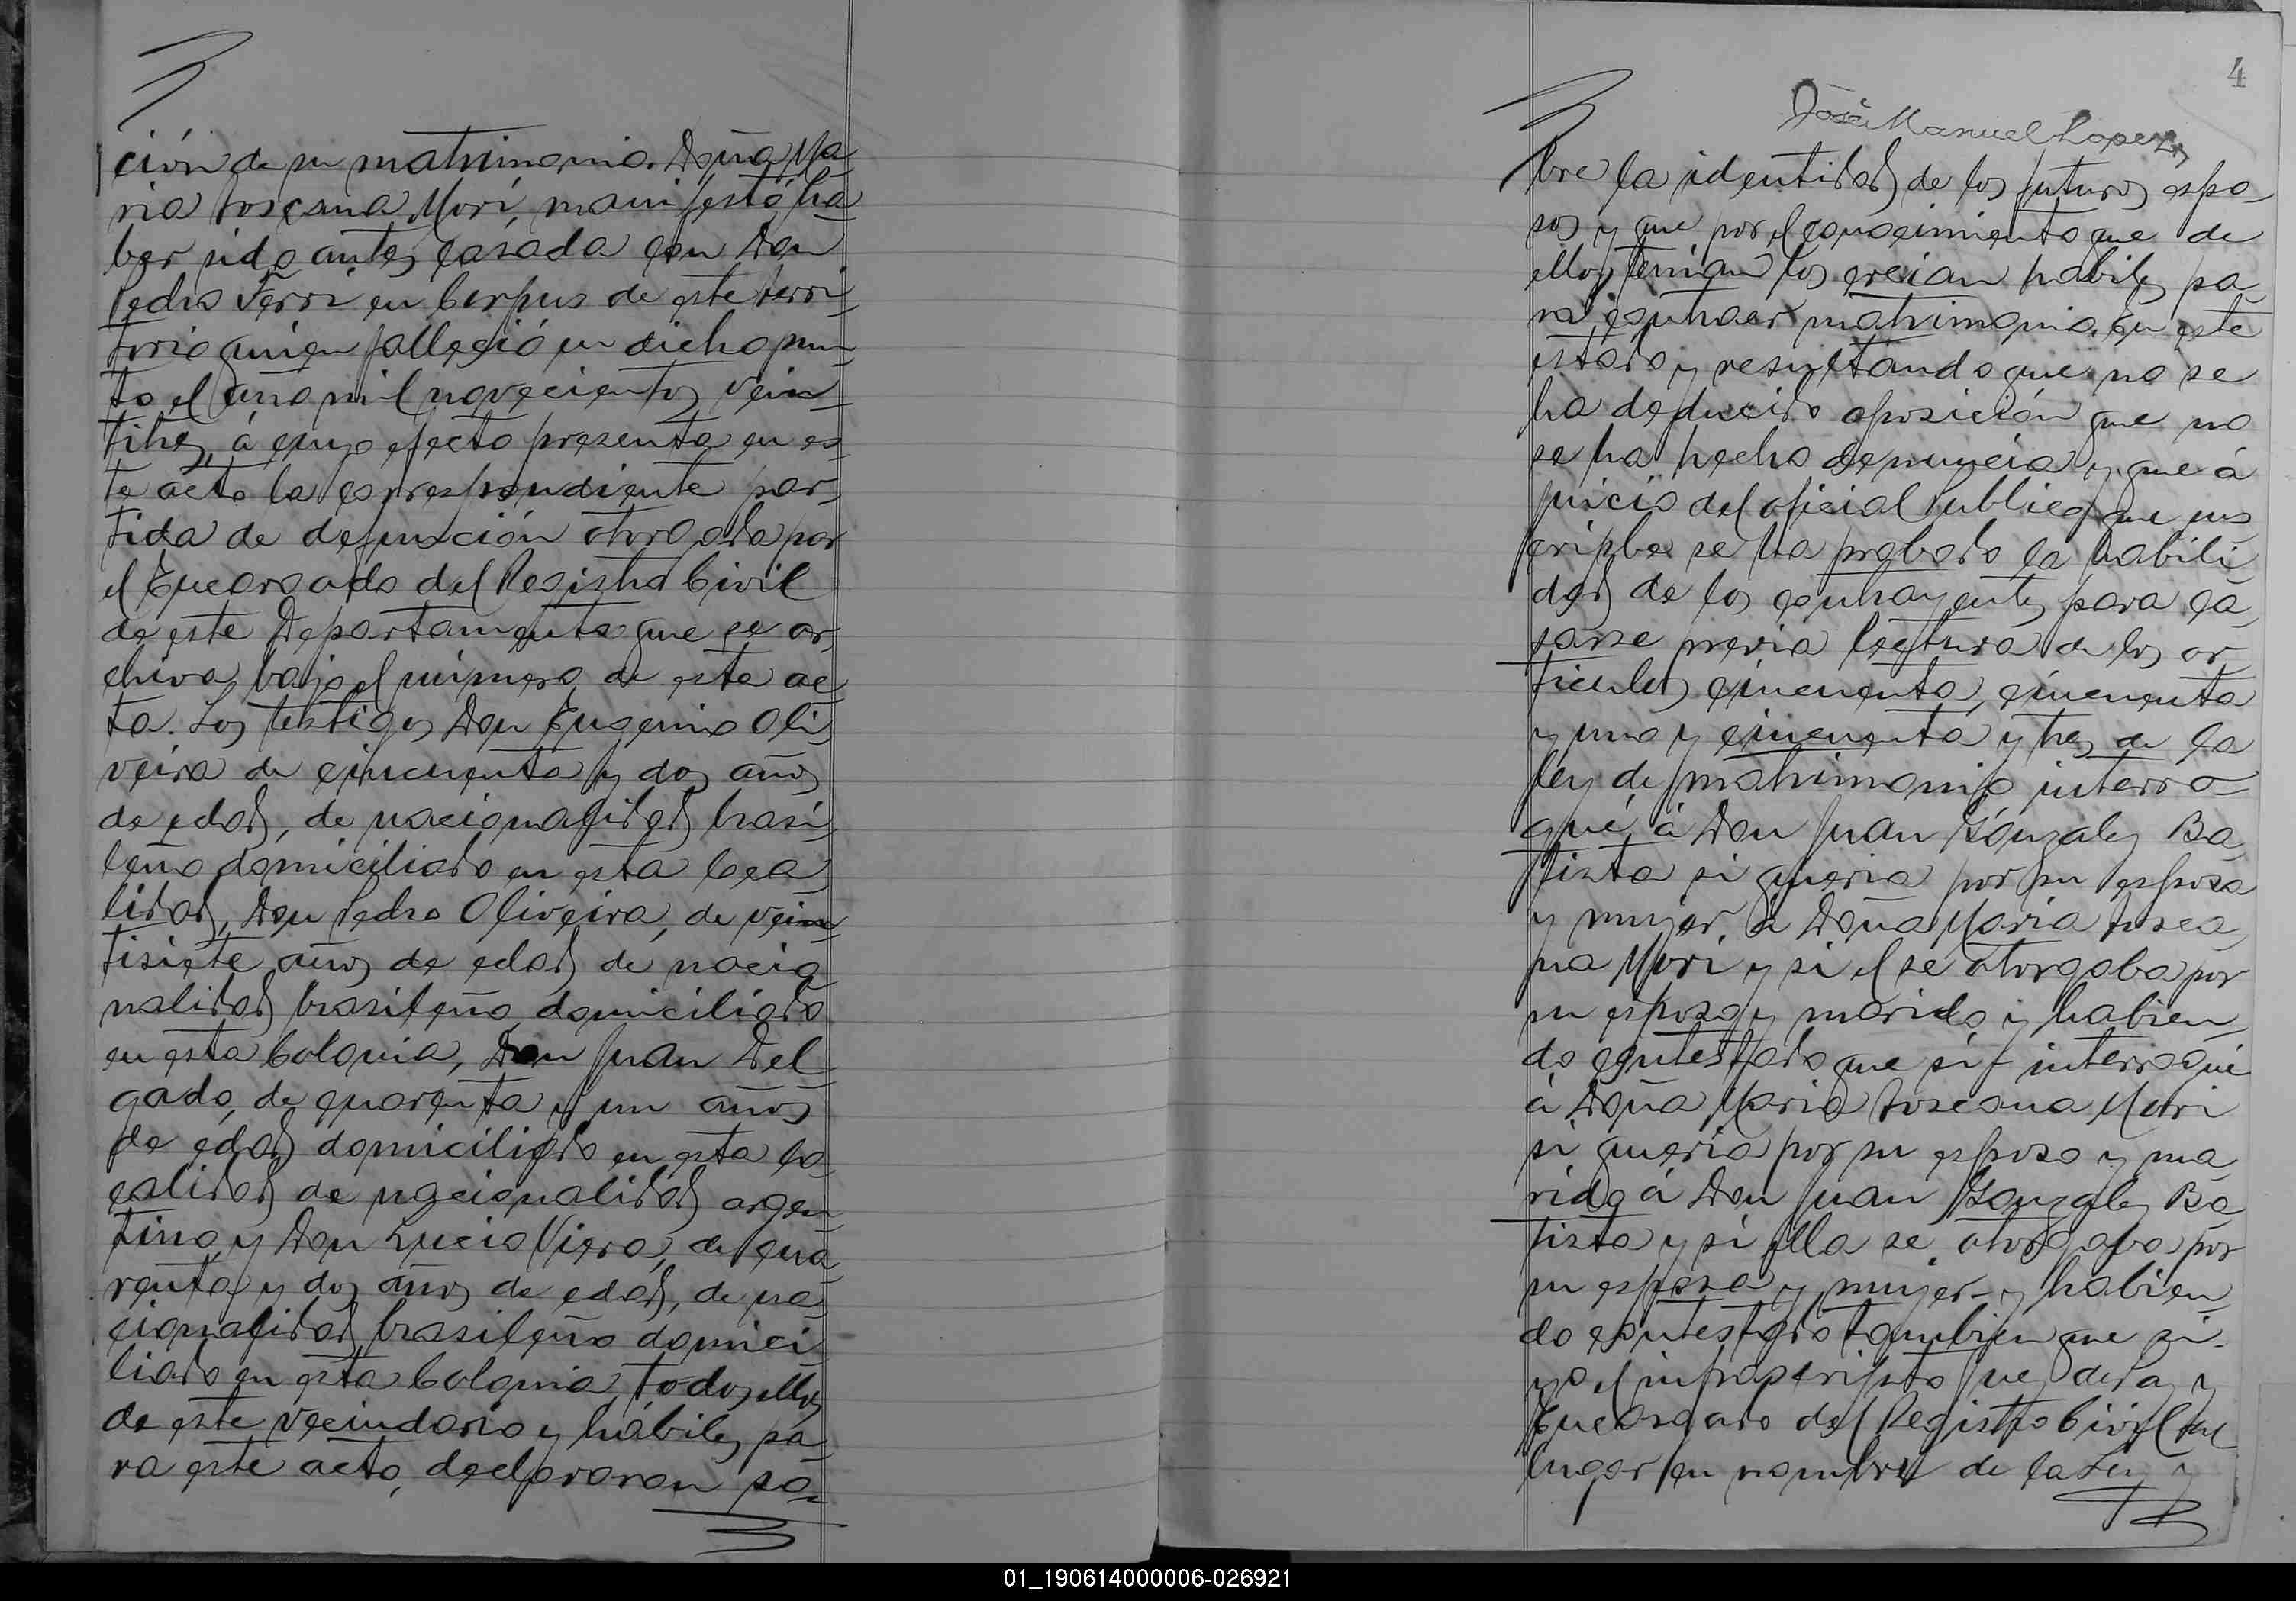 ción de su matrimonio. Doña Ma-
ria Toscana Mori, manifestó ha-
ber sido antes casada con Don
Pedro Ferri en Corpus de este terri-
torio quién falleció en dicho pun-
to el año mil novecientos vein-
titres, á cuyo efecto presenta en es-
te acto la correspondiente par-
tida de defunción otorgada por
el Encargado del Registro Civil
de este Departamento que se ar-
chiva bajo el número de esta ac-
ta. Los testigos Don Eugenio Oli-
veira de cincuenta y dos años
de edad, de nacionalidad brasi-
leño domiciliado en esta loca-
lidad, Don Pedro Oliveira, de vein-
tisiete años de edad de nacio-
nalidad brasileño domiciliado
en esta Colonia, Don Juan Del-
gado, de cuarenta y un años
de edad domiciliado en esta lo-
calidad de nacionalidad argen-
tino, y Don Lucio Viera, de cua-
renta y dos años de edad, de na-
cionalidad brasileño domici-
liado en esta Colonia, todos ellos
de este vecindario y hábiles pa-
ra este acto, declararon so-
4
José Manuel Lopez
bre la identidad de los futuros espo-
sos y que por el conocimiento que de
ellos tenían los creian habiles pa-
ra contraer matrimonio. En este
estado y resultando que no se
ha deducido oposición que no
se ha hecho denuncia y que á
juicio del oficial Publico que sus-
cribe se ha probado la habili-
dad de los contrayentes para ca-
sarse previa lectura de los ar-
ticulos cincuenta, cincuenta
y uno y cincuenta y tres de la
ley de matrimonio interro-
gué á Don Juan Gonzalez Ba-
tista si queria por su esposa
y mujer á Doña Maria Tosca-
na Mori y si el se otorgaba por
su esposo y marido y habien-
do contestado que sí interrogué
á Doña Maria Toscana Mori
si queria por su esposo y ma-
rido á Don Juan Gonzalez Ba-
tista y si ella se otorgaba por
su esposa y mujer y habien-
do contestado tambien que si.
yo el infrascripto Juez de Paz y
Encargado del Registro Civil del
lugar en nombre de la Ley y
01_190614000006-026921